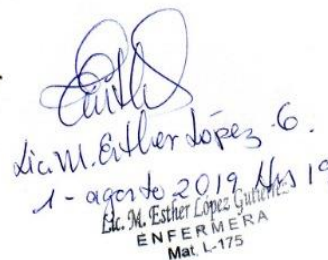 Lic. M. Esther López G.
1 - agosto 2019 Hrs 19
Lic. M. Esther López Gutierrez
ENFERMERA
Mat. L-175